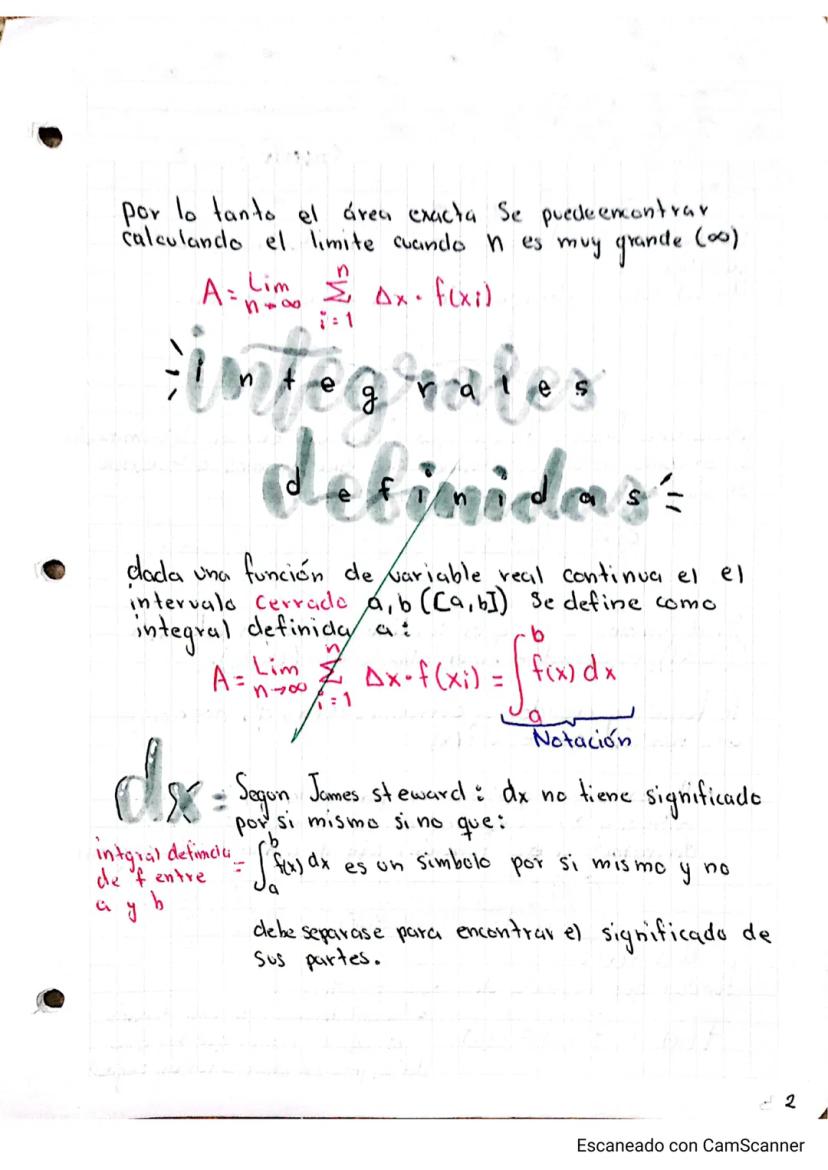 por lo tanto el área exacta Se puedeencontrar
calculando el limite cuando n es muy grande (∞)
A = Lim n→∞ n Σ i=1 Δx · f(xi)
integrales
definidas
dada una función de variable real continua el el
intervalo cerrado a, b ([a,b]) Se define como
integral definida a:
A = Lim n→∞ n Σ i=1 Δx · f(xi) = ∫ b a f(x) dx
Notación
dx = Segun James steward: dx no tiene significado
por si mismo si no que:
intgral definida
de f entre
a y b
= ∫ b a f(x) dx es un simbolo por si mismo y no
debe separase para encontrar el significado de
sus partes.
2
Escaneado con CamScanner